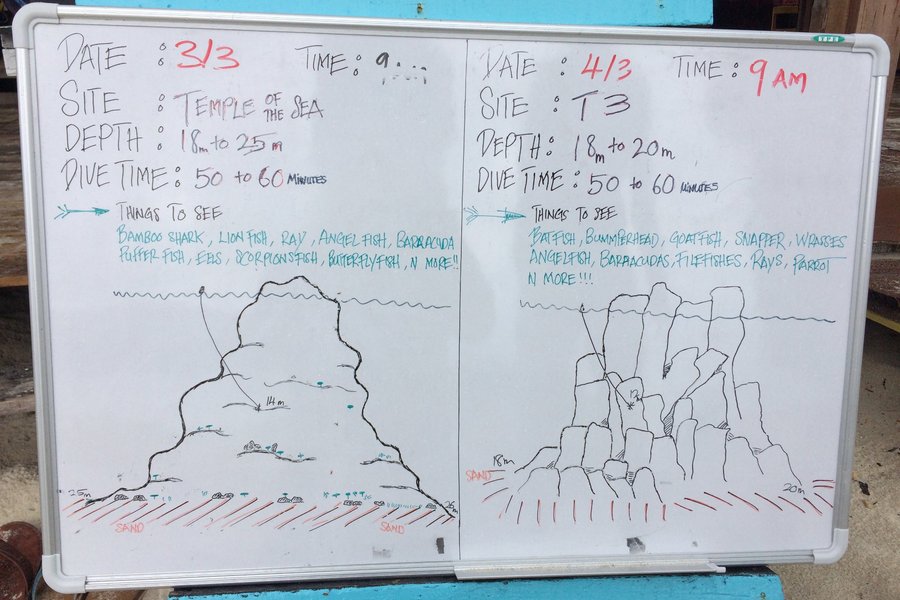 TPE
DATE : 3/3 TIME : 9 am
SITE : TEMPLE OF THE SEA
DEPTH : 18m to 25m
DIVE TIME : 50 to 60 MINUTES
THINGS TO SEE
BAMBOO SHARK, LION FISH, RAY, ANGEL FISH, BARRACUDA
PUFFER FISH, EELS, SCORPIONSFISH, BUTTERFLYFISH, N MORE!!
14m
25m
25m
SAND SAND
DATE : 4/3 TIME : 9 AM
SITE : T3
DEPTH : 18m to 20m
DIVE TIME : 50 to 60 MINUTES
THINGS TO SEE
BATFISH, BUMMPERHEAD, GOATFISH, SNAPPER, WRASSES
ANGELFISH, BARRACUDAS, FILEFISHES, RAYS, PARROT
N MORE!!!
18m
SAND
20m